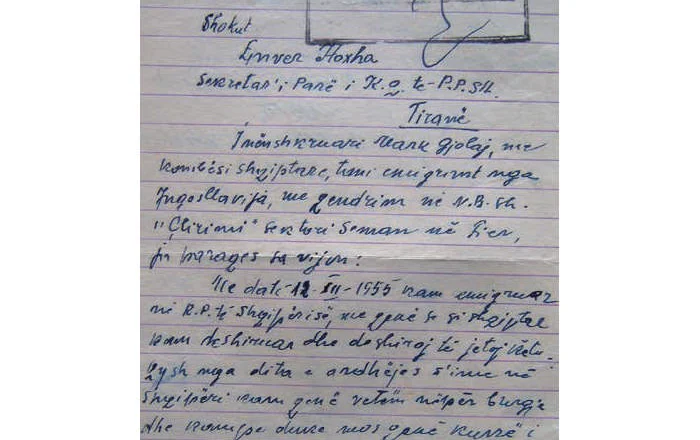 Shokut
Enver Hoxha
Sekretar i Parë i K.Q. të P.P.SH.
Tiranë
I nënshkruari Mark Gjolaj, me
kombësi shqiptare, tani emigrant nga
Jugosllavija, me qendrim në N.B.sh.
"Çlirimi" sektori Seman në Fier,
ju paraqes sa vijon:
Me datë 12-III-1955 kam emigruar
në R.P. të Shqipërisë, me qenë se si shqiptar
kam dëshiruar dhe dëshiroj të jetoj këtu.
Qysh nga dita e ardhëjes s'ime në
Shqipëri kam qenë vetëm nëpër burgje
dhe kampe duke mos qenë kurrë i